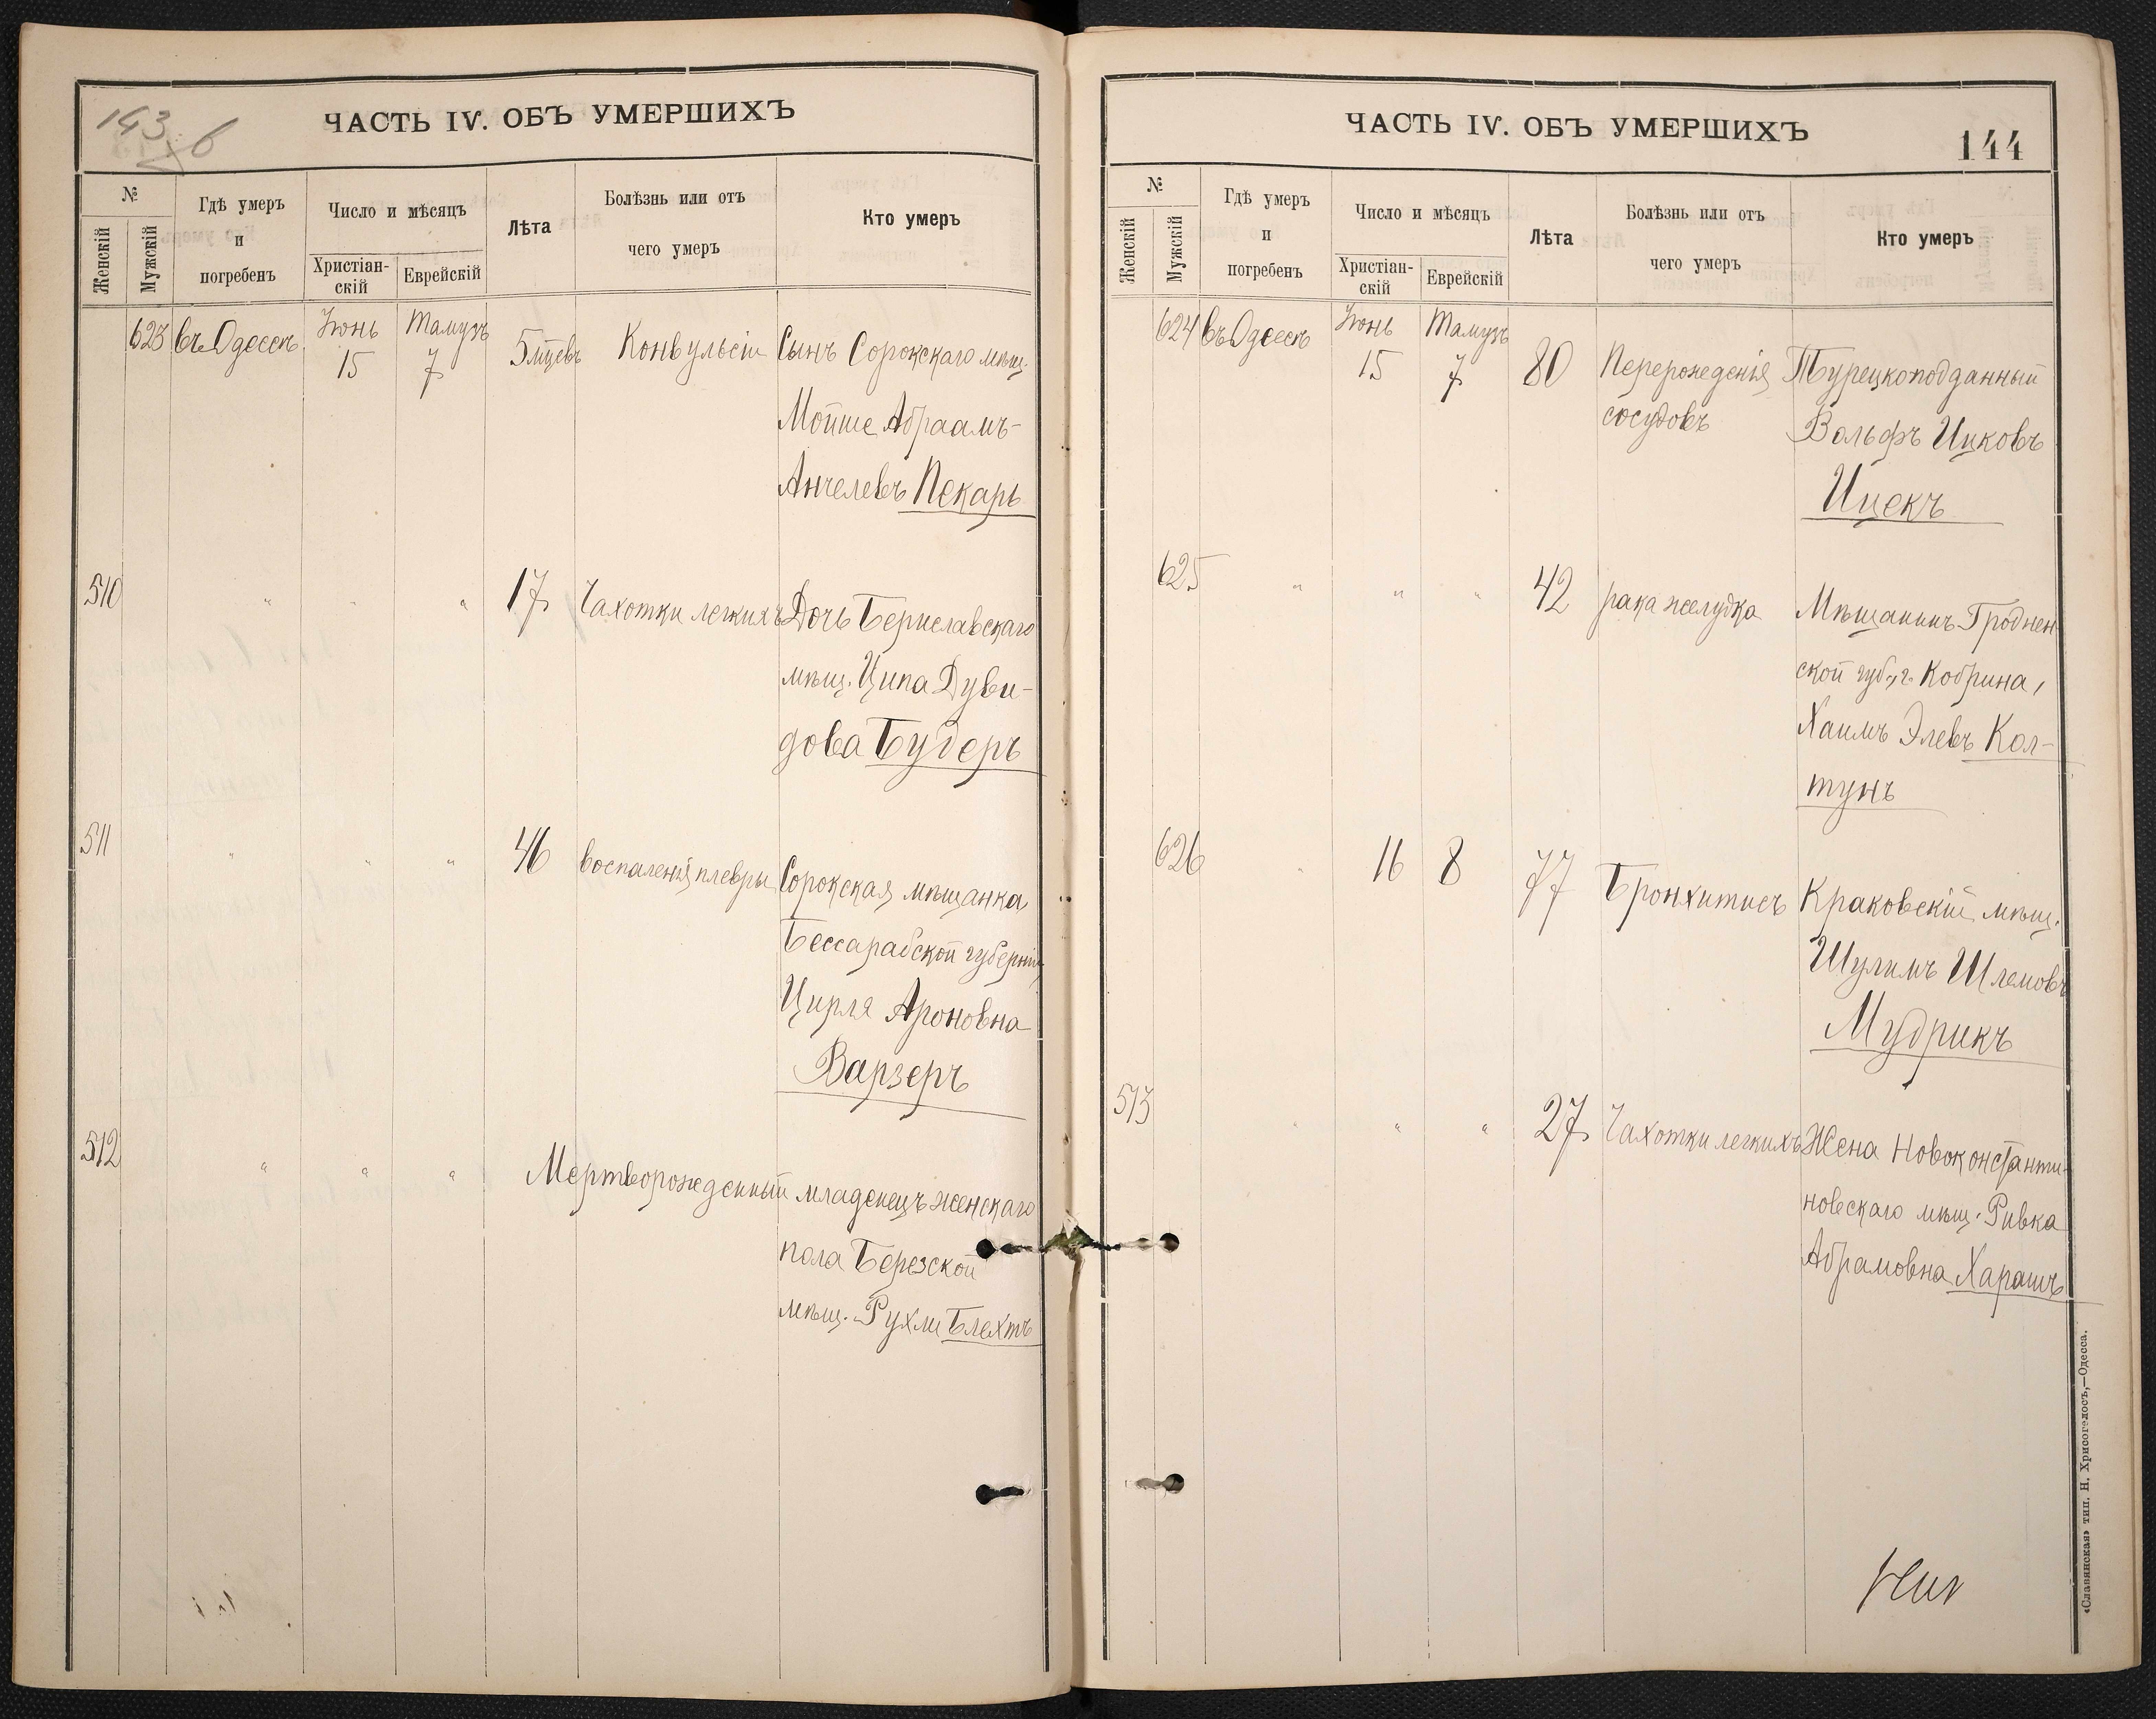 143 б
ЧАСТЬ IV. ОБЪ УМЕРШИХЪ
№
Женскій
Мужскій
Гдѣ умеръ
и
погребенъ
Число и мѣсяцъ
Христіан-
скій
Еврейскій
Лѣта
Болѣзнь или отъ
чего умеръ
Кто умеръ
623 въ Одессѣ Іюнь Тамузъ 5 мцевъ Конвульсіи Сынъ Сорокскаго мѣщ.
15 7
Мойше Абраамъ-
Анчелевъ Пекарь
510 " " " 17 Чахотки легкихъ Дочь Бериславскаго
мѣщ. Ципа Дуви-
дова Будеръ
511 " " " 46 воспаленія плевры Сорокская мѣщанка
Бессарабской губерніи
Цирля Ароновна
Варзеръ
512 " " " Мертворожденный младенецъ женскаго
пола Березской
мѣщ. Рухли Блехтъ
ЧАСТЬ IV. ОБЪ УМЕРШИХЪ
144
№
Женскій
Мужскій
Гдѣ умеръ
и
погребенъ
Число и мѣсяцъ
Христіан-
скій
Еврейскій
Лѣта
Болѣзнь или отъ
чего умеръ
Кто умеръ
624 въ Одессѣ Іюнь Тамузъ
15 7 80 Перерожденія Турецкоподданный
сосудовъ Вольфъ Ицковъ
Ицекъ
625 " " " 42 рака желудка Мѣщанинъ Гроднен-
ской губ., г. Кобрина,
Хаимъ Элевъ Кол-
тунъ
626 " 16 8 77 Бронхитисъ Краковскій мѣщ.
Шулимъ Шлемовъ
Мудрикъ
513 " " " 27 Чахотки легкихъ Жена Новоконстанти-
новскаго мѣщ. Ривка
Абрамовна Харашъ
«Славянская» тип. Н. Хрисогелосъ,—Одесса.